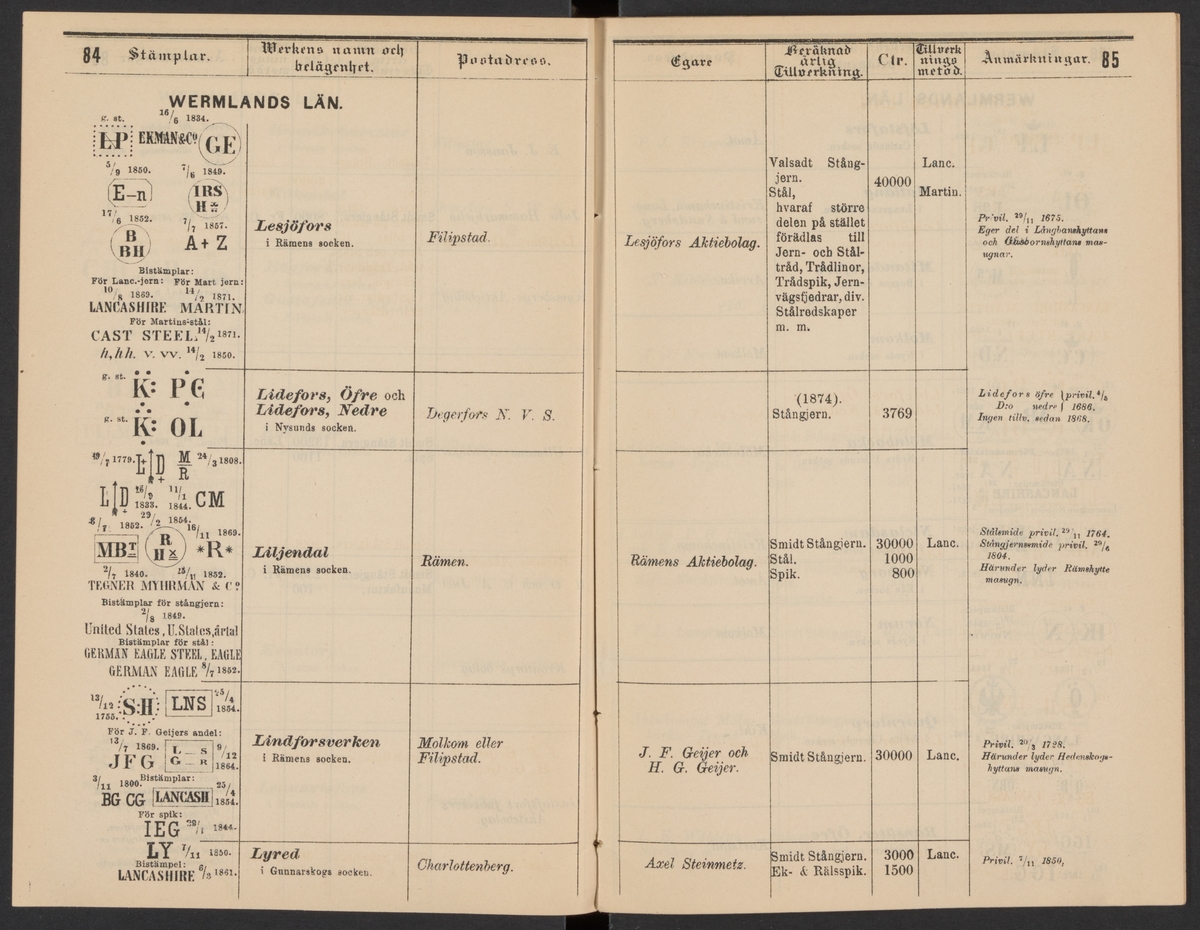 84 Stämplar.
Werkens namn och
belägenhet.
Postadress.
WERMLANDS LÄN.
g. st. 16/6 1834.
LP EKMAN&Co GE
5/9 1850. 7/6 1849.
E-n IRS
H
17/6 1852. 7/7 1857.
B
BH A+Z
Bistämplar:
För Lanc.-jern: För Mart jern:
10/8 1869. 14/2 1871.
LANCASHIRE MARTIN
För Martins-stål:
CAST STEEL. 14/2 1871.
h, hh. v. vv. 14/2 1850.
Lesjöfors
i Rämens socken.
Filipstad.
g. st. K: PG
g. st. K: OL
Lidefors, Öfre och
Lidefors, Nedre
i Nysunds socken.
Degerfors N. V. S.
/7 1779. L D M/R 24/3 1808.
L D 1833. 11/1 1844. CM
/7 1852. 29/2 1854.
16/11 1869.
MBT R
H *R*
2/7 1840. 1852.
TEGNER MYHRMAN & Co
Bistämplar för stångjern:
2/8 1849.
United States, U.States, årtal
Bistämplar för stål:
GERMAN EAGLE STEEL, EAGLE
GERMAN EAGLE 8/7 1852.
Liljendal
i Rämens socken.
Rämen.
13/12 1755. S:H LNS 25/4 1854.
För J. F. Geijers andel:
13/7 1869. L S 9/12
JFG G R 1864.
3/11 1800. Bistämplar: 25/4
BG CG LANCASH 1854.
För spik:
IEG 1844.
Lindforsverken
i Rämens socken.
Molkom eller
Filipstad.
LY 7/11 1850.
Bistämpel:
LANCASHIRE 6/3 1861.
Lyred
i Gunnarskogs socken.
Charlottenberg.
Egare
Beräknad
årlig
Tillverkning.
Ctr.
Tillverk
nings
metod.
Anmärkningar. 85
Lesjöfors Aktiebolag.
Valsadt Stång-
jern.
Stål,
hvaraf större
delen på stället
förädlas till
Jern- och Stål-
tråd, Trådlinor,
Trådspik, Jern-
vägsfjedrar, div.
Stålredskaper
m. m.
40000
Lanc.
Martin.
Privil. 29/11 1675.
Eger del i Långbanshyttans
och Gåsbornshyttans mas-
ugnar.
(1874).
Stångjern.
3769
Lidefors öfre } privil. 4/5
D:o nedre } 1686.
Ingen tillv. sedan 1868.
Rämens Aktiebolag.
Smidt Stångjern. 30000 Lanc.
Stål. 1000
Spik. 800
Stålsmide privil. 29/11 1764.
Stångjernssmide privil.
1804.
Härunder lyder Rämshytte
masugn.
J. F. Geijer och
H. G. Geijer.
Smidt Stångjern. 30000 Lanc.
Privil. 20/3 1798.
Härunder lyder Hedenskogs-
hyttans masugn.
Axel Steinmetz.
Smidt Stångjern. 3000 Lanc.
Ek- & Rälsspik. 1500
Privil. 7/11 1850,